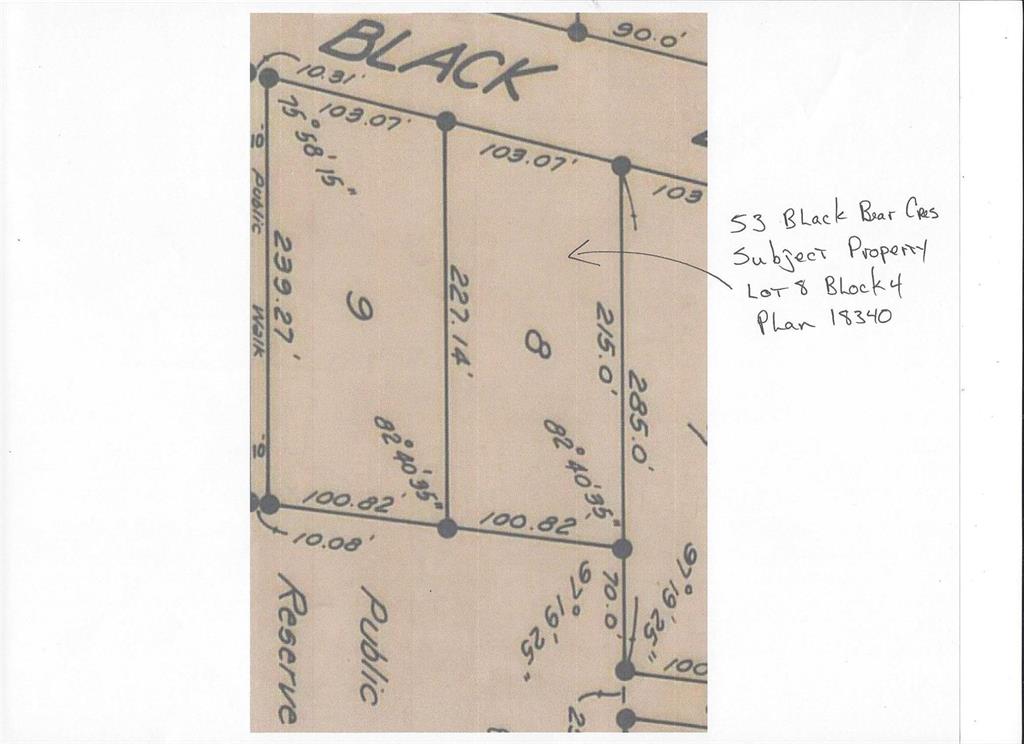 BLACK
90.0'
10.31'
103.07'
103.07'
103
75° 58' 15"
10
Public
Walk
10
239.27'
9
227.14'
8
215.0'
285.0'
82° 40' 35"
82° 40' 35"
100.82'
100.82
10.08'
70.0'
97° 19' 25"
97° 19' 25"
100
Public
Reserve
53 Black Bear Cres
Subject Property
Lot 8 Block 4
Plan 18340